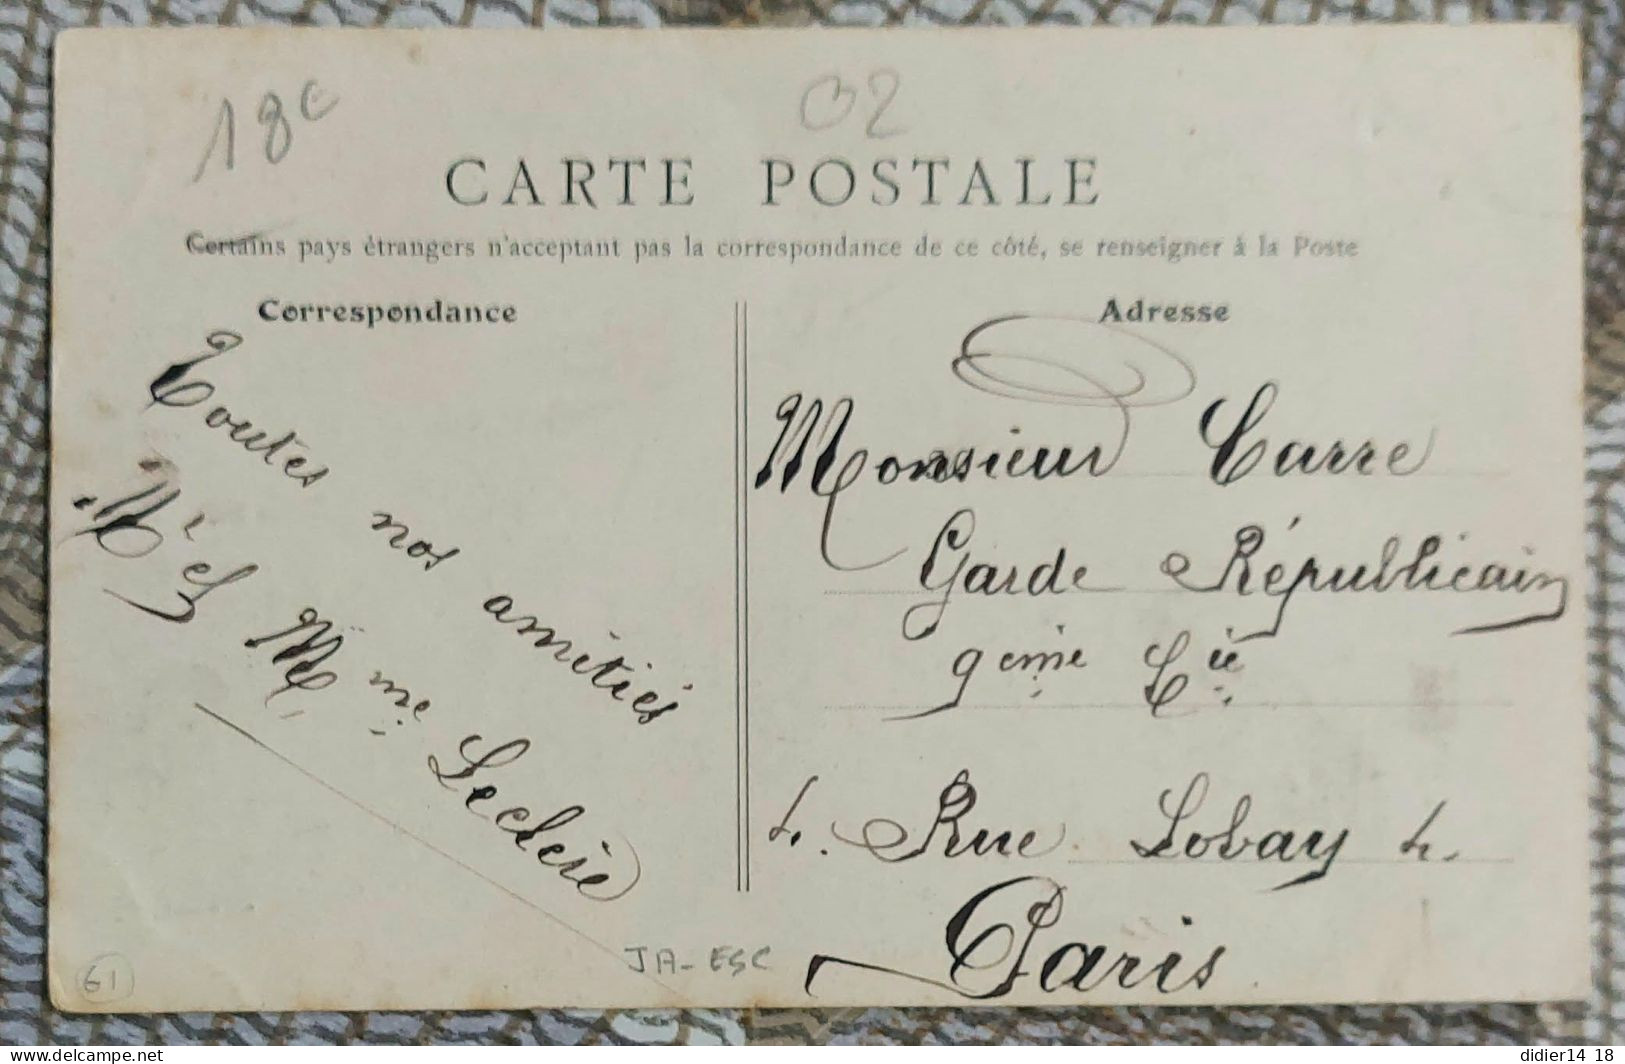 18€
02
CARTE POSTALE
Certains pays étrangers n'acceptant pas la correspondance de ce côté, se renseigner à la Poste
Correspondance
Toutes nos amitiés
Mr et Mme Leclère
Adresse
Monsieur Carre
Garde Républicain
9eme Cie
4. Rue Lobau 4.
Paris
JA-ESC
61
didier14 18